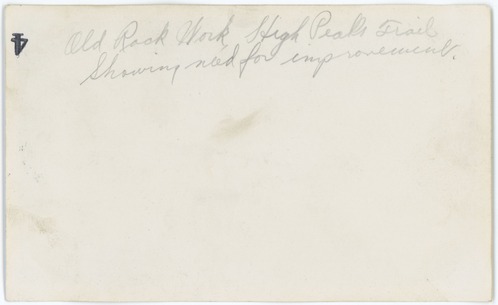 4
Old Rock Work, High Peaks Trail
Showing need for improvement.